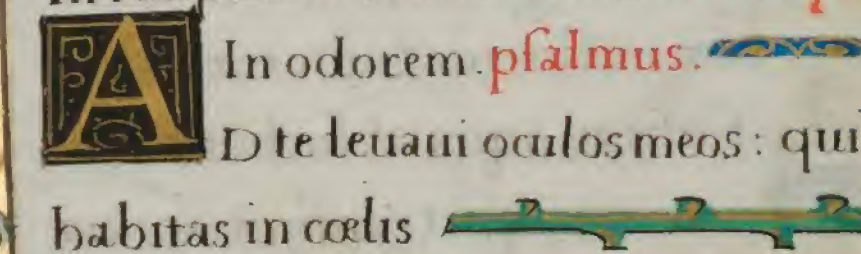 In odorem. psalmus.
AD te leuaui oculos meos: qui
habitas in cœlis